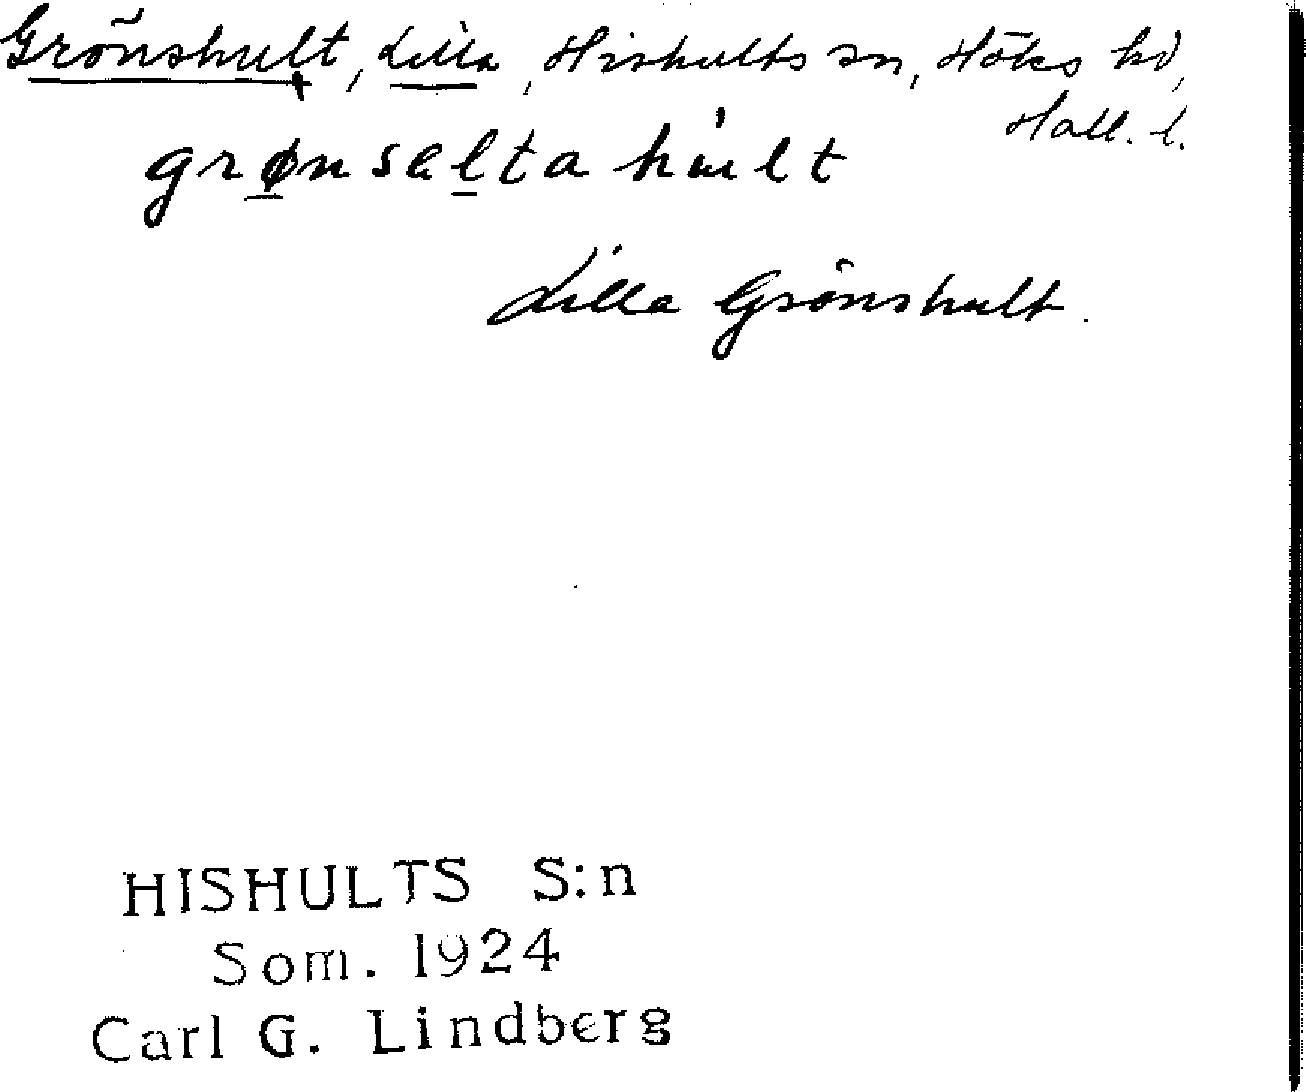 Grönshult, Lilla, Hishults sn, Höks hd,
Hall. l.
grønseltahult
Lilla Grönshult.
HISHULTS S:n
Som. 1924
Carl G. Lindberg